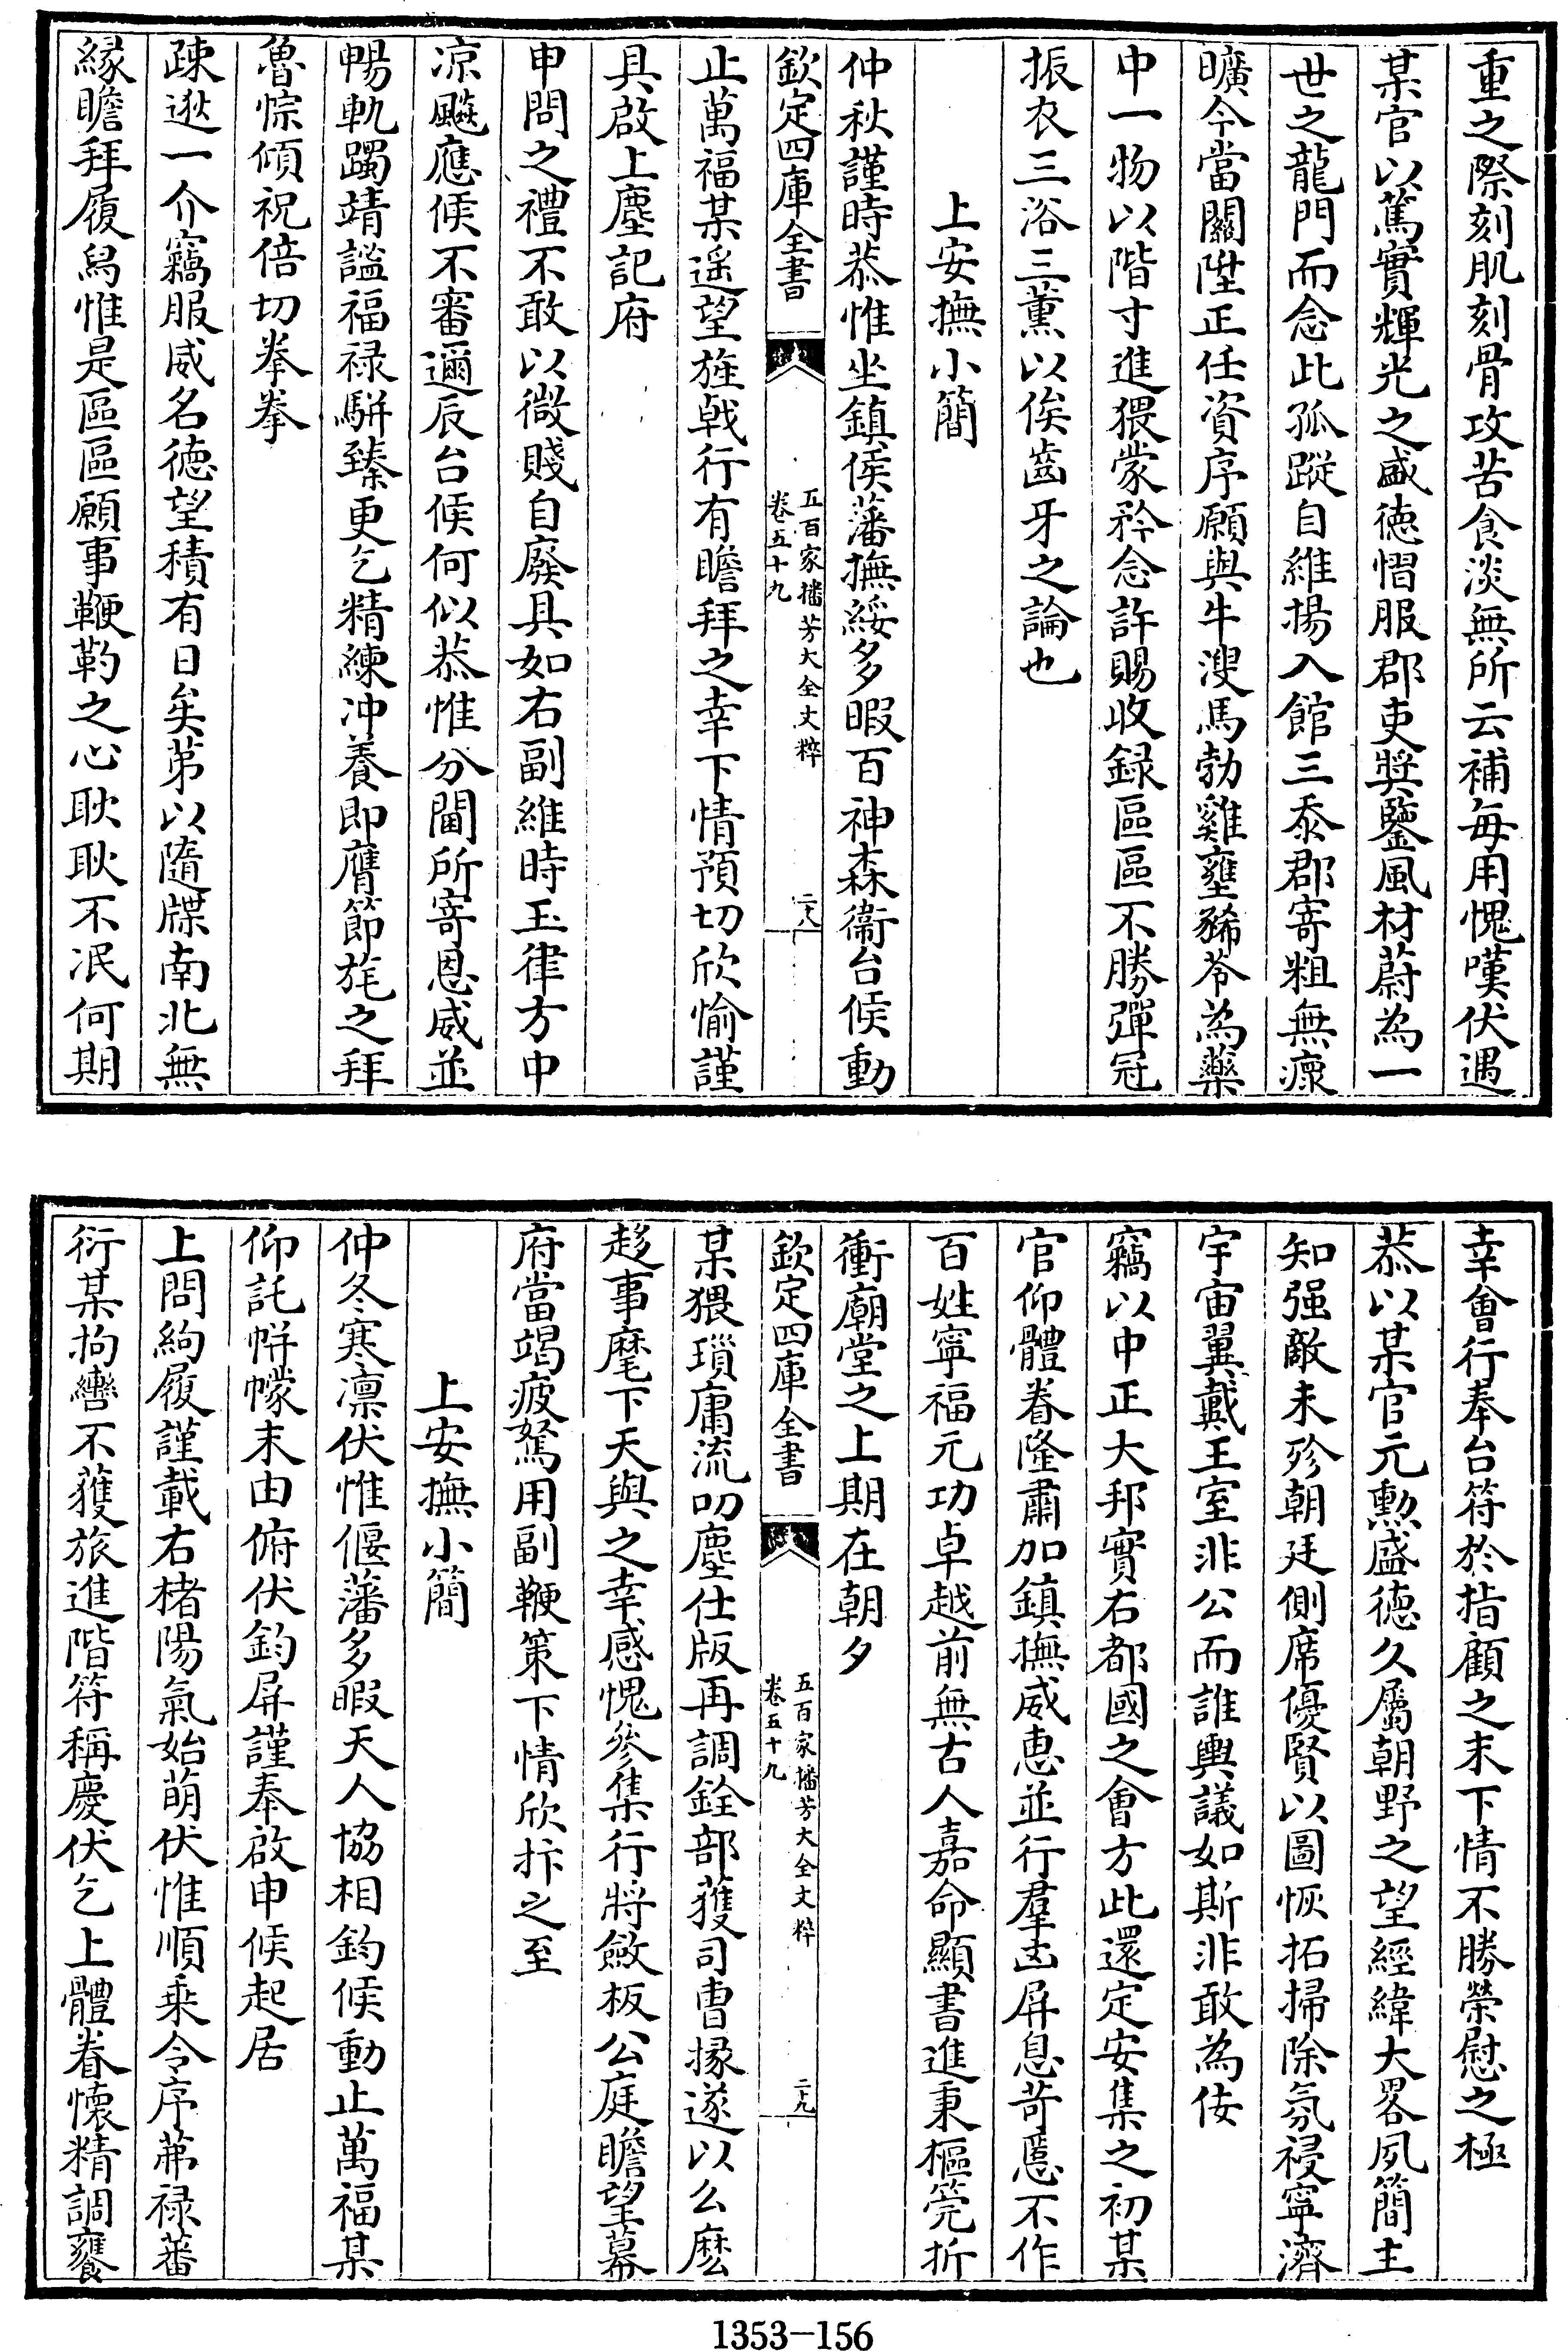 重之際刻肌刻骨攻苦食淡無所云補毎用愧嘆伏遇
某官以篤實輝光之盛徳慴服郡吏奬鑒風材蔚為一
世之龍門而念此孤蹤自維揚入館三忝郡寄粗無瘝
曠今當闗陞正任資序願與牛溲馬勃雞壅豨苓為藥
中一物以階寸進猥蒙矜念許賜收録區區不勝彈冠
振衣三浴三薰以俟齒牙之論也
上安撫小簡
仲秋謹時恭惟坐鎮侯藩撫綏多暇百神森衞台候動
欽定四庫全書
五百家播芳大全文粹
卷五十九
二八
止萬福某遥望旌㦸行有瞻拜之幸下情預切欣愉謹
具啟上塵記府
申問之禮不敢以微賤自廢具如右副維時玉律方中
凉飈應候不審邇辰台候何似恭惟分閫所寄恩威並
暢軌躅靖謐福禄駢臻更乞精練冲養即膺節旄之拜
魯悰傾祝倍切拳拳
疎逖一介竊服威名徳望積有日矣第以隨牒南北無
縁瞻拜履舄惟是區區願事鞭靮之心耿耿不泯何期
幸會行奉台符於指顧之末下情不勝榮慰之極
恭以某官元勲盛徳久屬朝野之望經緯大畧夙簡主
知强敵未殄朝廷側席優賢以圖恢拓掃除氛祲寧濟
宇宙翼戴王室非公而誰輿議如斯非敢為佞
竊以中正大邦實右都國之會方此還定安集之初某
官仰體眷隆肅加鎮撫威恵並行羣㐫屏息苛慝不作
百姓寧福元功卓越前無古人嘉命顯書進秉樞筦折
衝廟堂之上期在朝夕
欽定四庫全書
五百家播芳大全文粹
卷五十九
二九
某猥瑣庸流叨塵仕版再調銓部獲司曺掾遂以么麽
趍事麾下天與之幸感愧參集行將斂板公庭瞻望幕
府當竭疲駑用副鞭策下情欣抃之至
上安撫小簡
仲冬寒凛伏惟偃藩多暇天人協相鈞候動止萬福某
仰託帡幪末由俯伏鈞屏謹奉啟申候起居
上問絇履謹載右楮陽氣始萌伏惟順乗令序茀禄蕃
衍某拘轡不獲旅進階符稱慶伏乞上體眷懐精調饔
1353—156